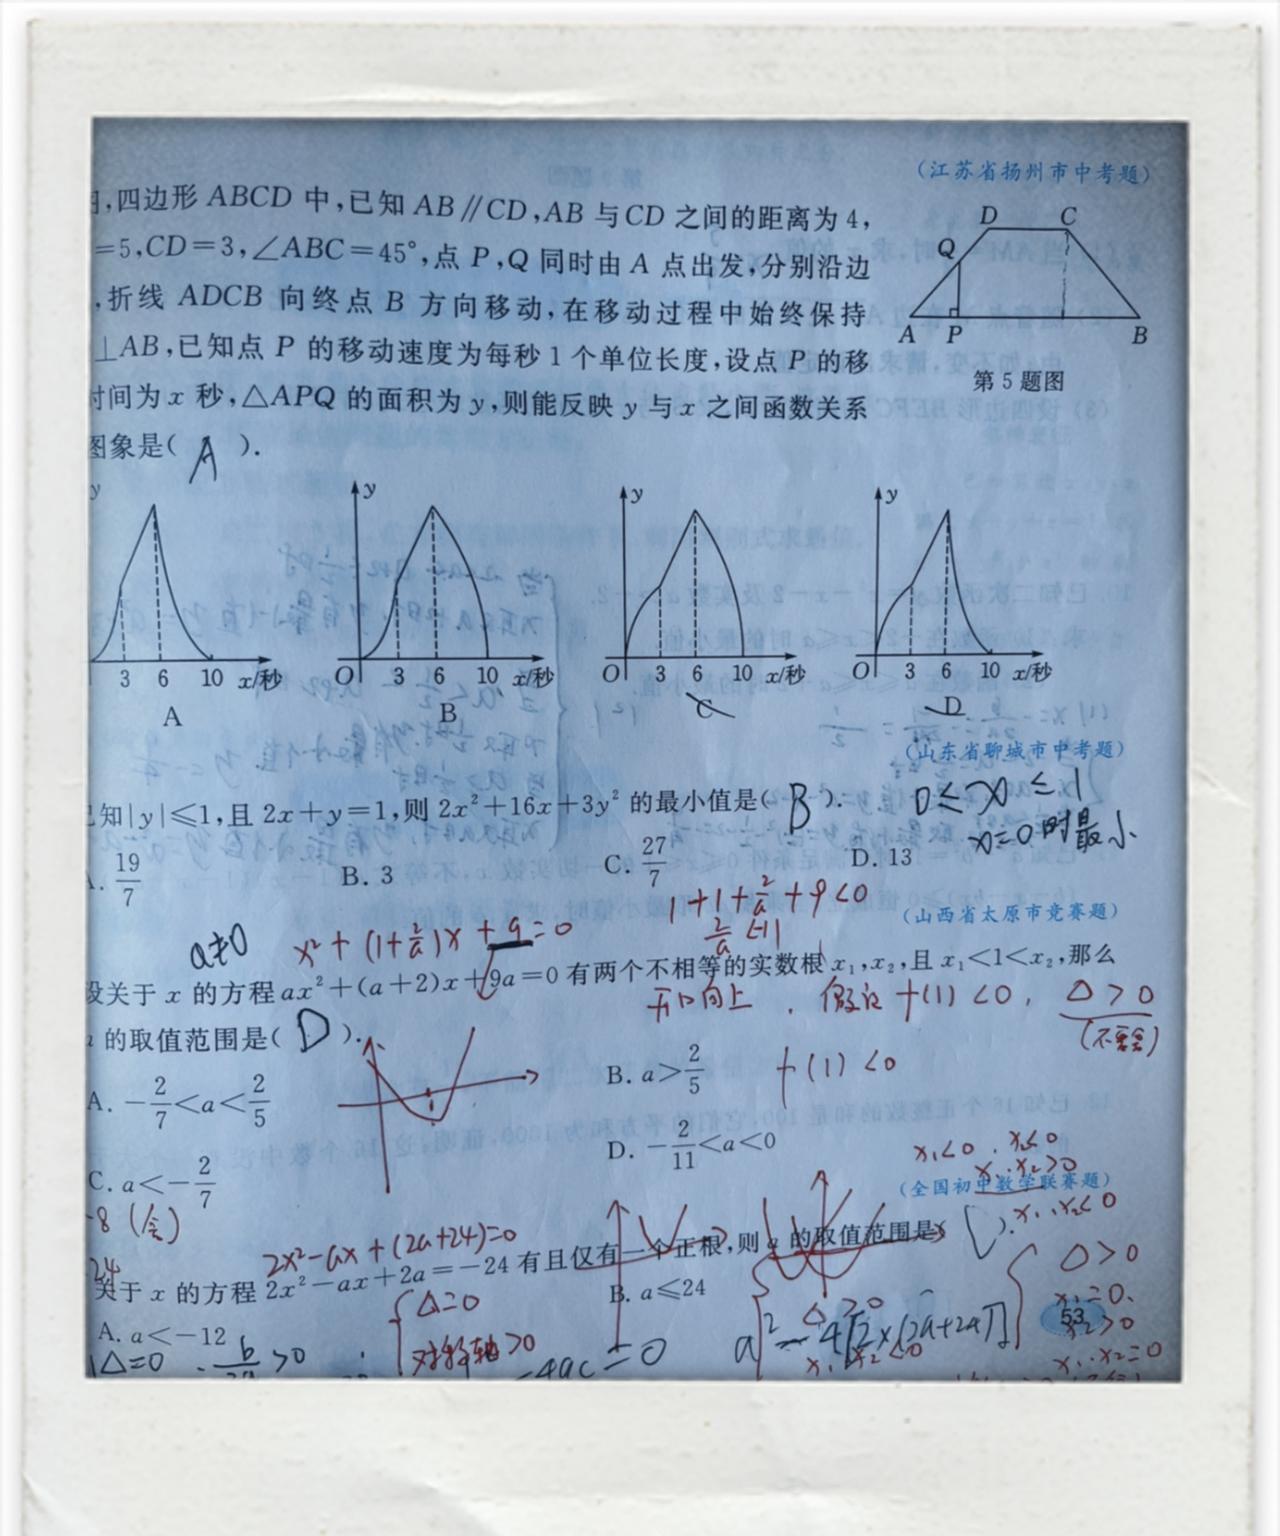 (江苏省扬州市中考题)
,四边形 ABCD 中,已知 AB∥CD,AB 与 CD 之间的距离为 4,
=5,CD=3,∠ABC=45°,点 P,Q 同时由 A 点出发,分别沿边
,折线 ADCB 向终点 B 方向移动,在移动过程中始终保持
⊥AB,已知点 P 的移动速度为每秒 1 个单位长度,设点 P 的移
时间为 x 秒,△APQ 的面积为 y,则能反映 y 与 x 之间函数关系
图象是( A ).
D C
Q
A P B
第 5 题图
y y y y
3 6 10 x/秒 O 3 6 10 x/秒 O 3 6 10 x/秒 O 3 6 10 x/秒
A B C D
(山东省聊城市中考题)
知|y|≤1,且 2x+y=1,则 2x²+16x+3y² 的最小值是( B ). 0≤x≤1
x=0时最小
A. 19/7 B. 3 C. 27/7 D. 13
1+1+2/a+9<0
(山西省太原市竞赛题)
a≠0 x²+(1+2/a)x+9=0 2/a<-11
设关于 x 的方程 ax²+(a+2)x+9a=0 有两个不相等的实数根 x₁,x₂,且 x₁<1<x₂,那么
开口向上 . 假设 f(1)<0, △>0
的取值范围是( D ).
A. -2/7<a<2/5 B. a>2/5 f(1)<0
C. a<-2/7 D. -2/11<a<0
x₁<0 . x₂≤0
x₁·x₂>0
(全国初中数学联赛题)
-8 (舍) x₁·x₂<0
2x²-ax+(2a+24)=0
关于 x 的方程 2x²-ax+2a=-24 有且仅有一个正根,则 a 的取值范围是( ).
A. a<-12 B. a≤24
△>0
x₁=0.
x₂>0
x₁·x₂=0
53
△=0
对称轴>0
△=0 -b/2a>0
-4ac=0
a²-4[2×(2a+24)]
△>0
x₁·x₂<0